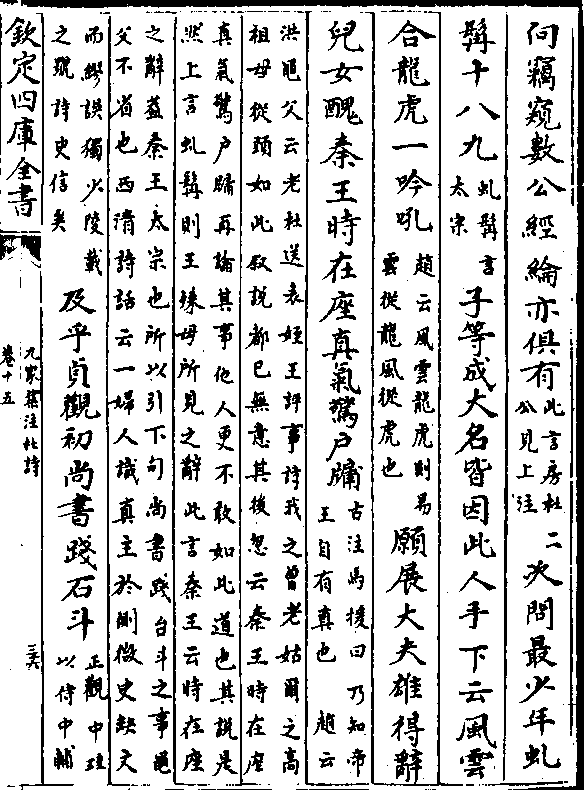 向竊窺數公經綸亦俱有此言房杜二公見上注次問最少年虬
髯十八九虬髯言太宗子等成大名皆因此人手下云風雲
合龍虎一吟吼趙云風雲龍虎則易雲從龍風從虎也願展大夫雄得辭
兒女醜秦王時在座真氣驚戶牖古注馬援曰乃知帝王自有真也趙云
洪黽父云老杜送表姪王評事詩我之曾老姑爾之高
祖母從頭如此叙說都已無意其後忽云秦王時在座
真氣驚户牖再論其事他人更不敢如此道也其說是
然上言虬髯則王殊母所見之辭此言秦王云時在座
之辭葢秦王太宗也所以引下句尚書踐台斗之事黽
父不省也西清詩話云一婦人識真主於側微史缺文
而繆誤獨少陵載之號詩史信矣及乎貞觀初尚書踐石斗正觀中珪以侍中輔
欽定四庫全書
九家集注杜詩
卷十五
三六